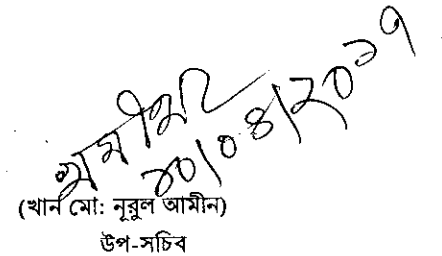 ২০/০৪/২০১৭
(খান মো: নূরুল আমীন)
উপ-সচিব